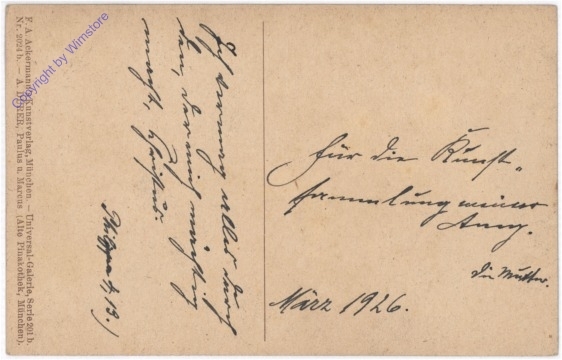 F. A. Ackermanns Kunstverlag, München. — Universal-Galerie, Serie 201 b.
Nr. 2024 b. — A. DÜRER, Paulus u. Marcus (Alte Pinakothek, München).
Copyright by Wimstore
Ich vermag alles durch
den, der mich mächtig
macht, Christus.
Philipper 4, 13.)
für die Kunst-
sammlung meiner
Anny.
die Mutter.
März 1926.